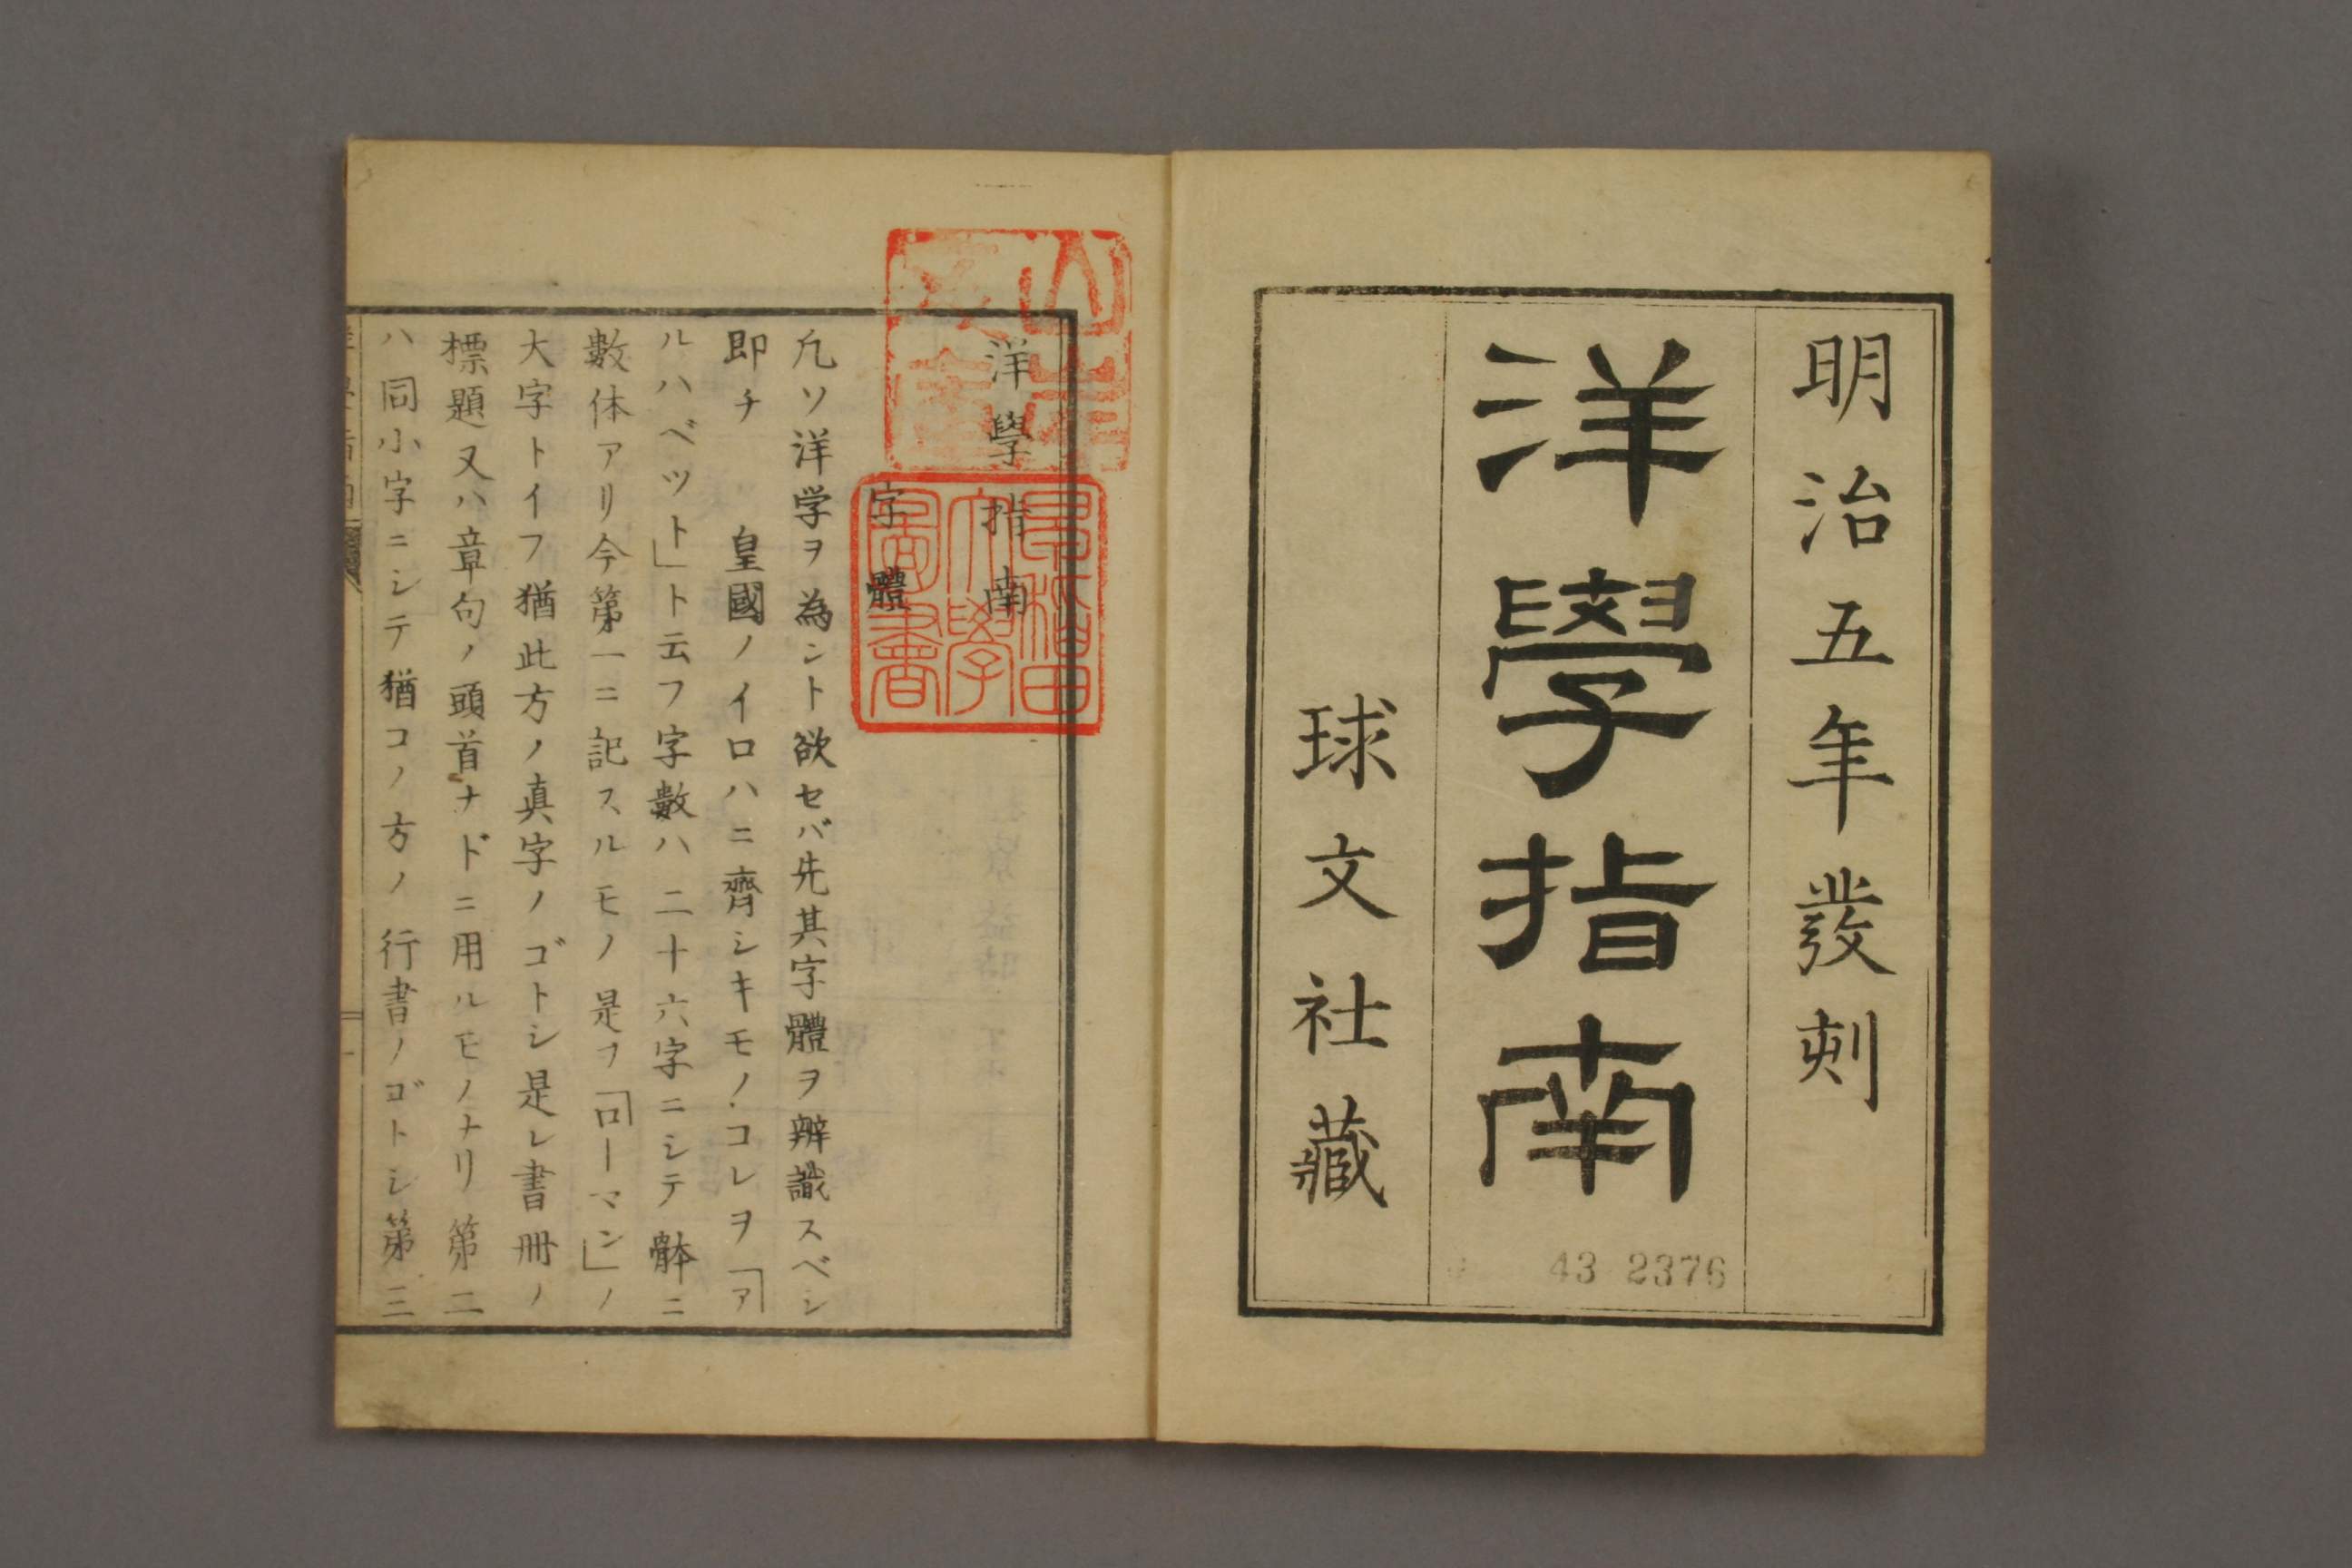 明治五年發刻
洋學指南
球文社藏
43 2376
洋學指南
字體
凢ソ洋学ヲ為ント欲セバ先其字體ヲ辨識スベシ
即チ 皇國ノイロハニ齊シキモノ.コレヲ「ア
ルハベット」ト云フ字數ハ二十六字ニシテ骵ニ
數体アリ今第一ニ記スルモノ是ヲ「ローマン」ノ
大字トイフ猶此方ノ真字ノゴトシ是レ書冊ノ
標題又ハ章句ノ頭首ナドニ用ルモノナリ第二
ハ同小字ニシテ猶コノ方ノ行書ノゴトシ第三
早稲田大學圖書